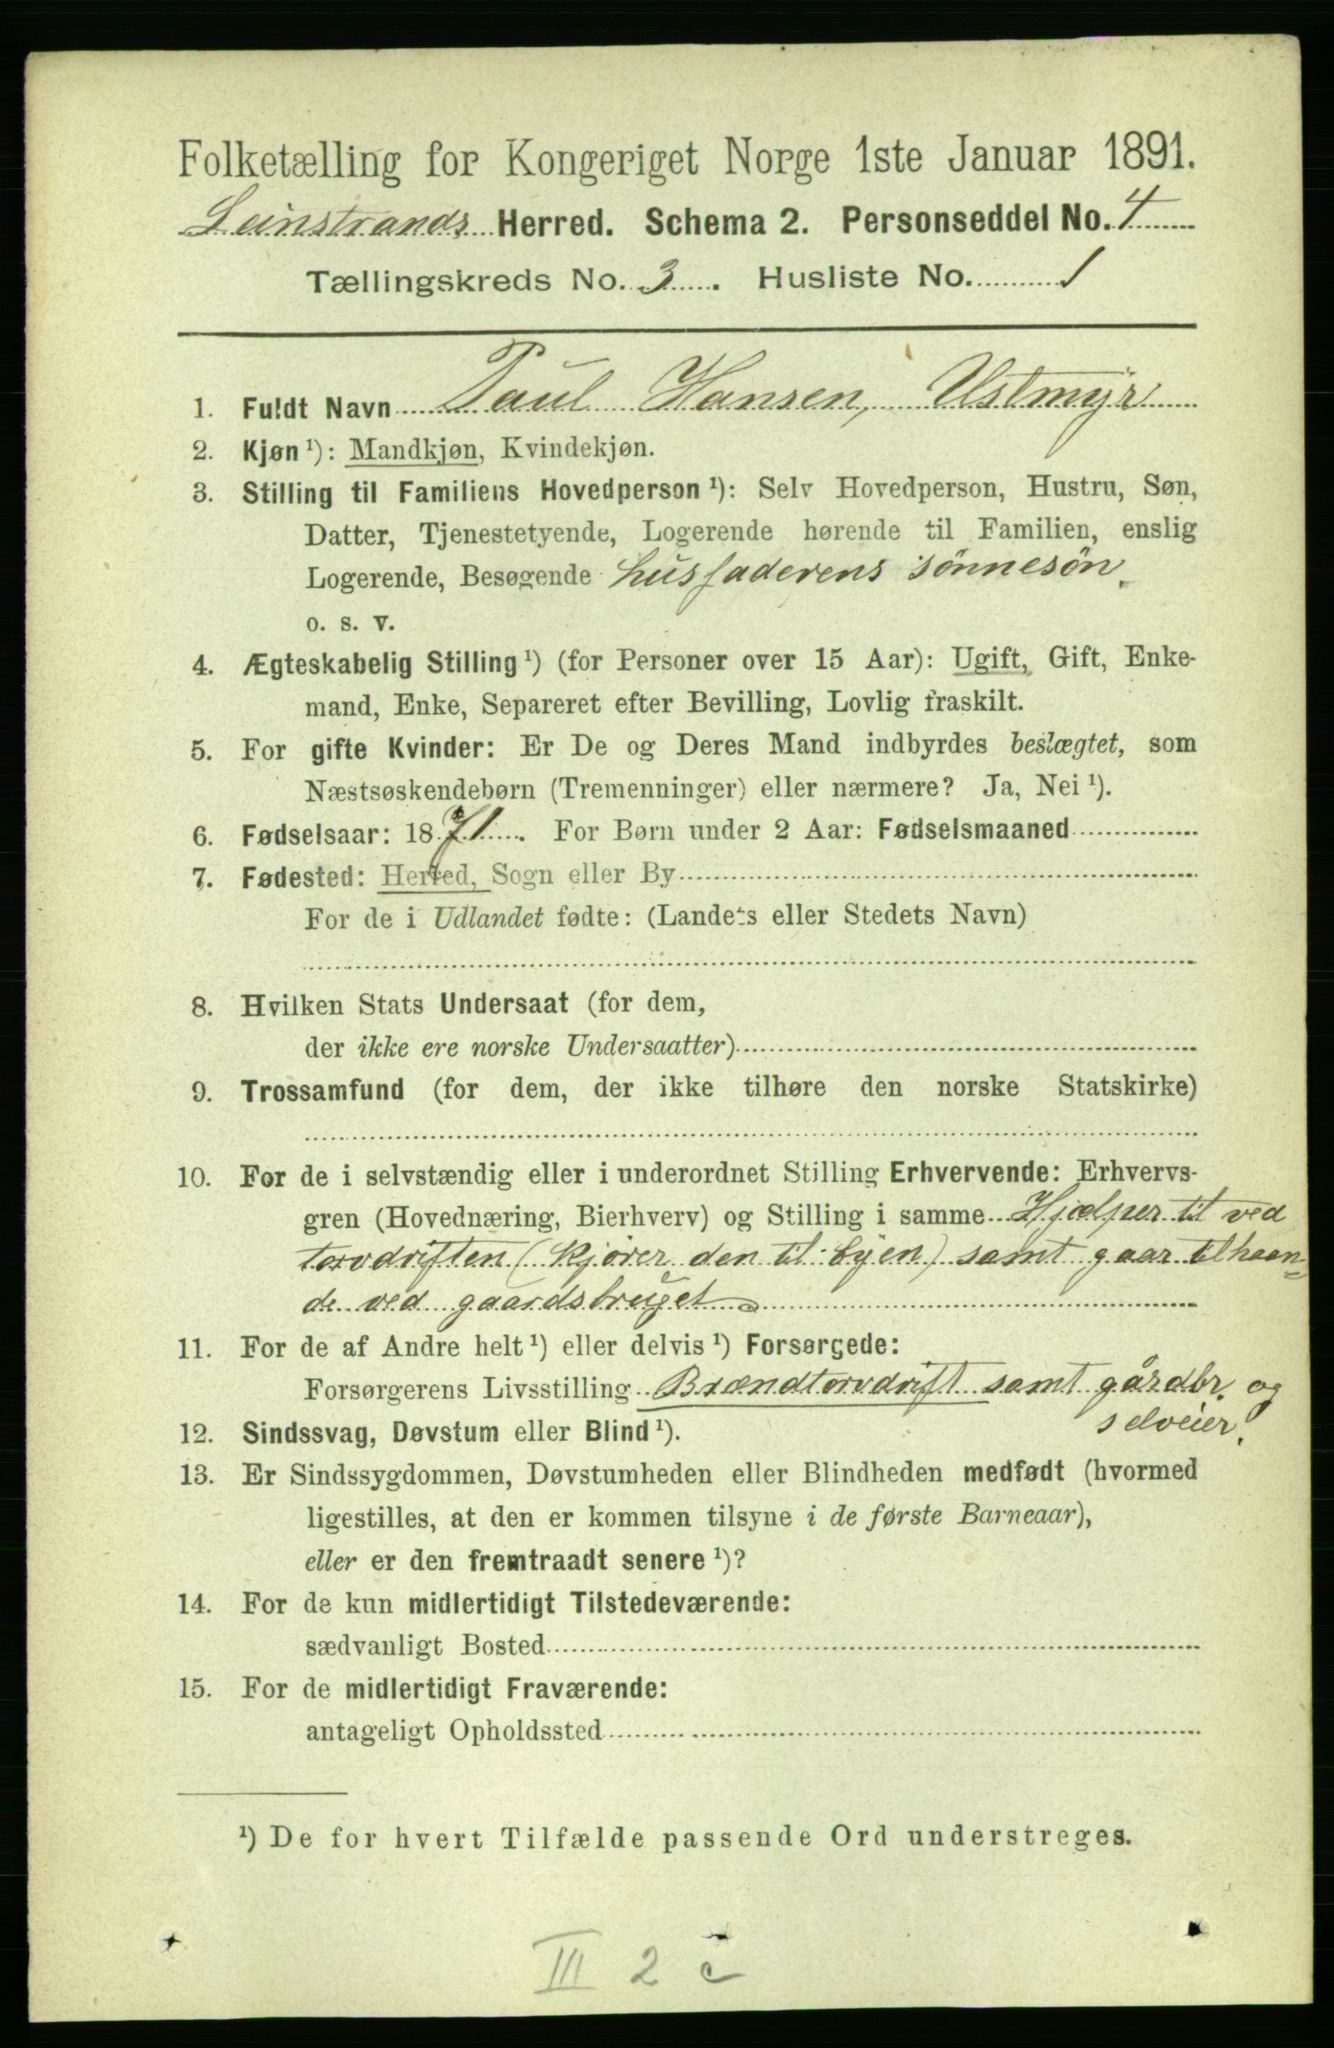 Folketælling for Kongeriget Norge 1ste Januar 1891.
Leinstrands Herred. Schema 2. Personseddel No. 4
Tællingskreds No. 3. Husliste No. 1
1. Fuldt Navn Paul Hansen, Ustmyr
2. Kjøn ¹): Mandkjøn, Kvindekjøn.
3. Stilling til Familiens Hovedperson ¹): Selv Hovedperson, Hustru, Søn,
Datter, Tjenestetyende, Logerende hørende til Familien, enslig
Logerende, Besøgende husfaderens sönnesön.
o. s. v.
4. Ægteskabelig Stilling ¹) (for Personer over 15 Aar): Ugift, Gift, Enke-
mand, Enke, Separeret efter Bevilling, Lovlig fraskilt.
5. For gifte Kvinder: Er De og Deres Mand indbyrdes beslægtet, som
Næstsøskendebørn (Tremenninger) eller nærmere? Ja, Nei ¹).
6. Fødselsaar: 1871. For Børn under 2 Aar: Fødselsmaaned
7. Fødested: Herred, Sogn eller By
For de i Udlandet fødte: (Landets eller Stedets Navn)
8. Hvilken Stats Undersaat (for dem,
der ikke ere norske Undersaatter)
9. Trossamfund (for dem, der ikke tilhøre den norske Statskirke)
10. For de i selvstændig eller i underordnet Stilling Erhvervende: Erhvervs-
gren (Hovednæring, Bierhverv) og Stilling i samme Hjælper til ved
torvdriften (kjører den til byen) samt gaar tilhaan-
de ved gaardsbruget
11. For de af Andre helt ¹) eller delvis ¹) Forsørgede:
Forsørgerens Livsstilling Brændtorvdrift samt gårdbr. og
selveier.
12. Sindssvag, Døvstum eller Blind ¹).
13. Er Sindssygdommen, Døvstumheden eller Blindheden medfødt (hvormed
ligestilles, at den er kommen tilsyne i de første Barneaar),
eller er den fremtraadt senere ¹)?
14. For de kun midlertidigt Tilstedeværende:
sædvanligt Bosted
15. For de midlertidigt Fraværende:
antageligt Opholdssted
¹) De for hvert Tilfælde passende Ord understreges.
III 2 c